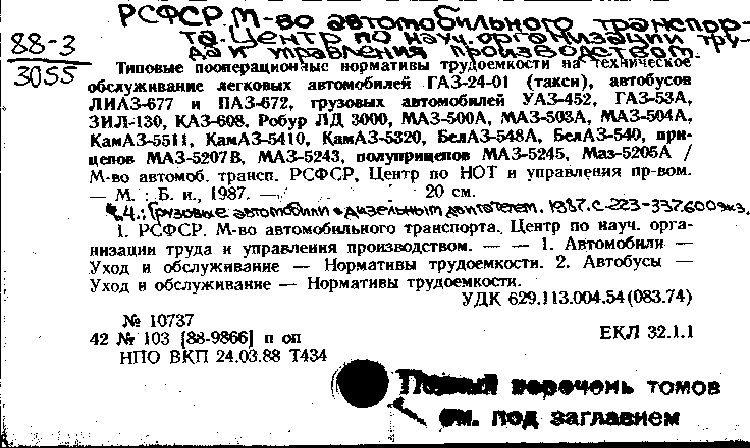 РСФСР. М-во автомобильного транспор-
та. Центр по науч. организации тру-
да и управления производством.
88-3
3055
Типовые пооперационные нормативы трудоемкости на техническое
обслуживание легковых автомобилей ГАЗ-24-01 (такси), автобусов
ЛИАЗ-677 и ПАЗ-672, грузовых автомобилей УАЗ-452, ГАЗ-53А,
ЗИЛ-130, КАЗ-608, Робур ЛД 3000, МАЗ-500А, МАЗ-503А, МАЗ-504А,
КамАЗ-5511, КамАЗ-5410, КамАЗ-5320, БелАЗ-548А, БелАЗ-540, при-
цепов МАЗ-5207В, МАЗ-5243, полуприцепов МАЗ-5245, Маз-5205А /
М-во автомоб. трансп. РСФСР, Центр по НОТ и управления пр-вом.
— М. : Б. и., 1987. — 20 см.
Ч.4.: Грузовые автомобили с дизельным двигателем. 1987. с. 223-337. 600 экз.
1. РСФСР. М-во автомобильного транспорта. Центр по науч. орга-
низации труда и управления производством. — — 1. Автомобили —
Уход и обслуживание — Нормативы трудоемкости. 2. Автобусы —
Уход и обслуживание — Нормативы трудоемкости.
УДК 629.113.004.54(083.74)
№ 10737
42 № 103 [88-9866] п оп
ЕКЛ 32.1.1
НПО ВКП 24.03.88 Т434
Полный перечень томов
см. под заглавием